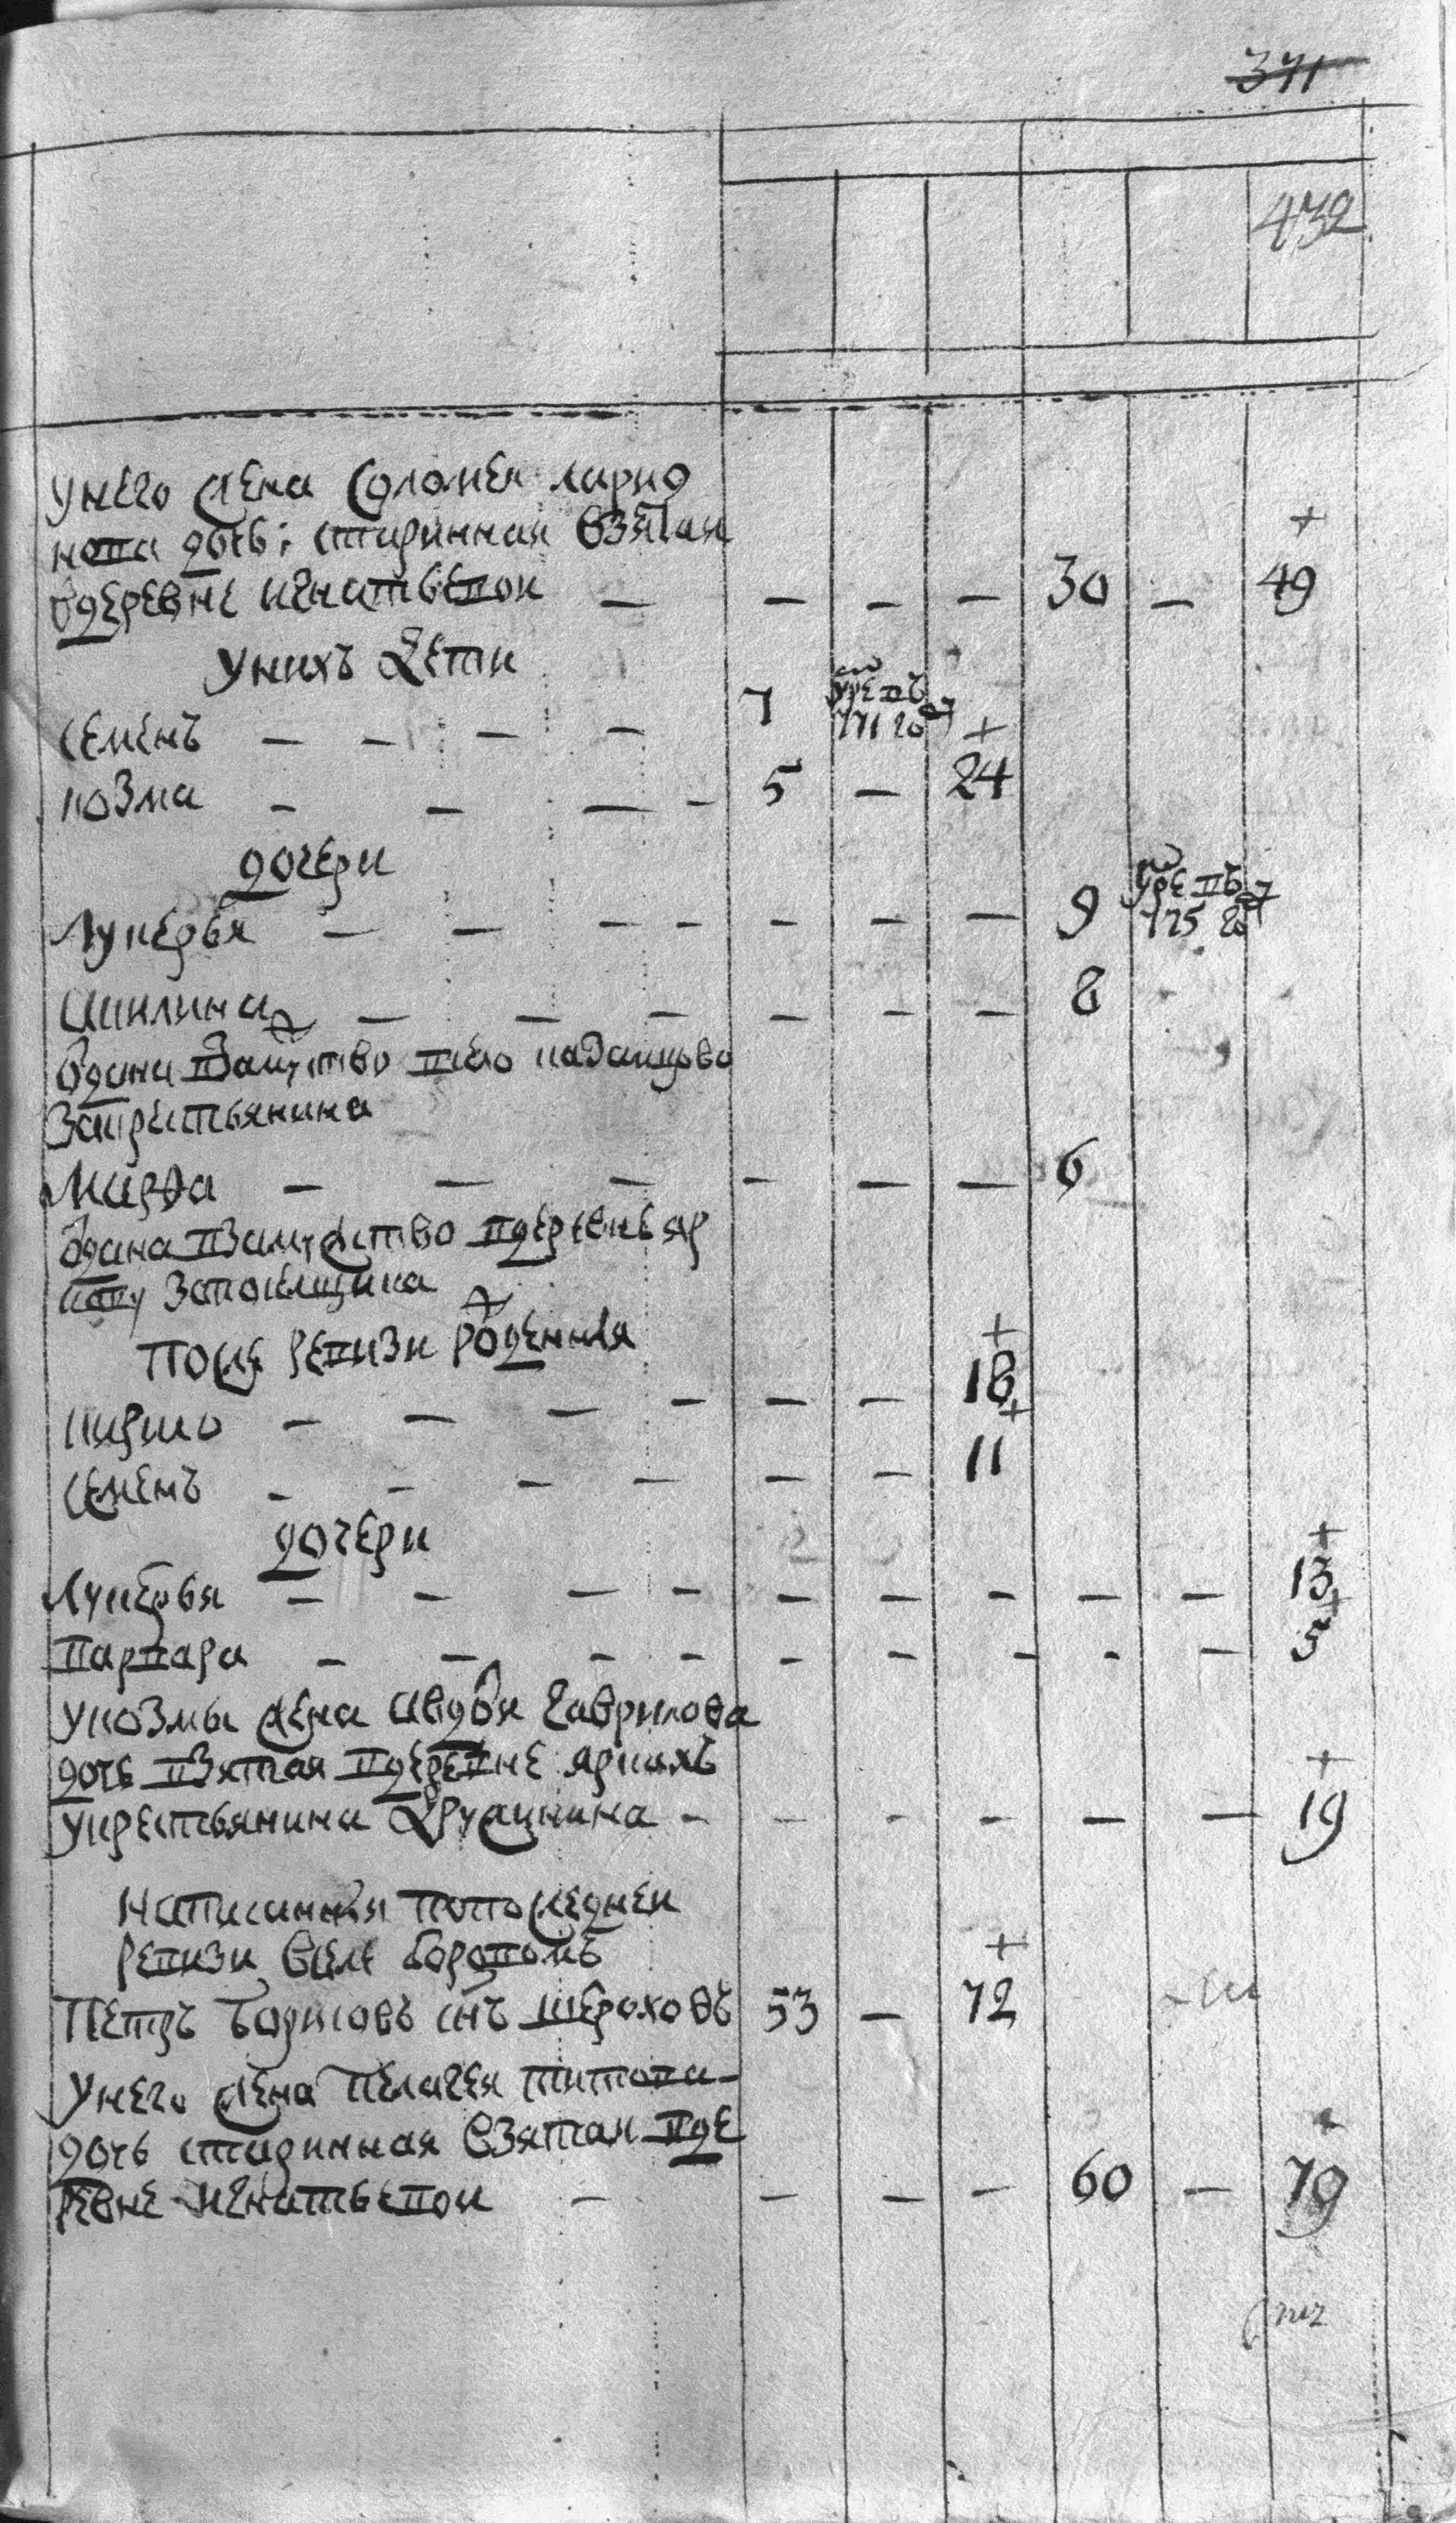 371
432
У него жена Соломея ларио
нова дочь: старинная взятая
вдеревне игнатьевой — — — — 30 — 49
У нихъ дети
семенъ — — — — 7 умре въ 771 году
козма — — — — 5 — 24
дочери
Лукерья — — — — — — — 9 умре въ 775 году
Акилина — — — — — — 8
одана взамужство
закрестьянина
Марфа — — — — — — 6
одана взамужство вдеревню яр
кову
После ревизи рожденныя
кирило — — — — — — 18
семенъ — — — — — — 11
дочери
Лукерья — — — — — — — — — 13
варвара — — — — — — — — — 5
укозмы жена авдотя гаврилова
дочь взятая вдеревне яркахъ
укрестьянина Дружинина — — — — — — 19
написанныя попоследней
ревизи вселе боровомъ
Петръ борисовъ снъ шероховъ 53 — 72
У него жена пелагея титова
дочь старинная взятая вде
ревне игнатьевой — — — — 60 — 79